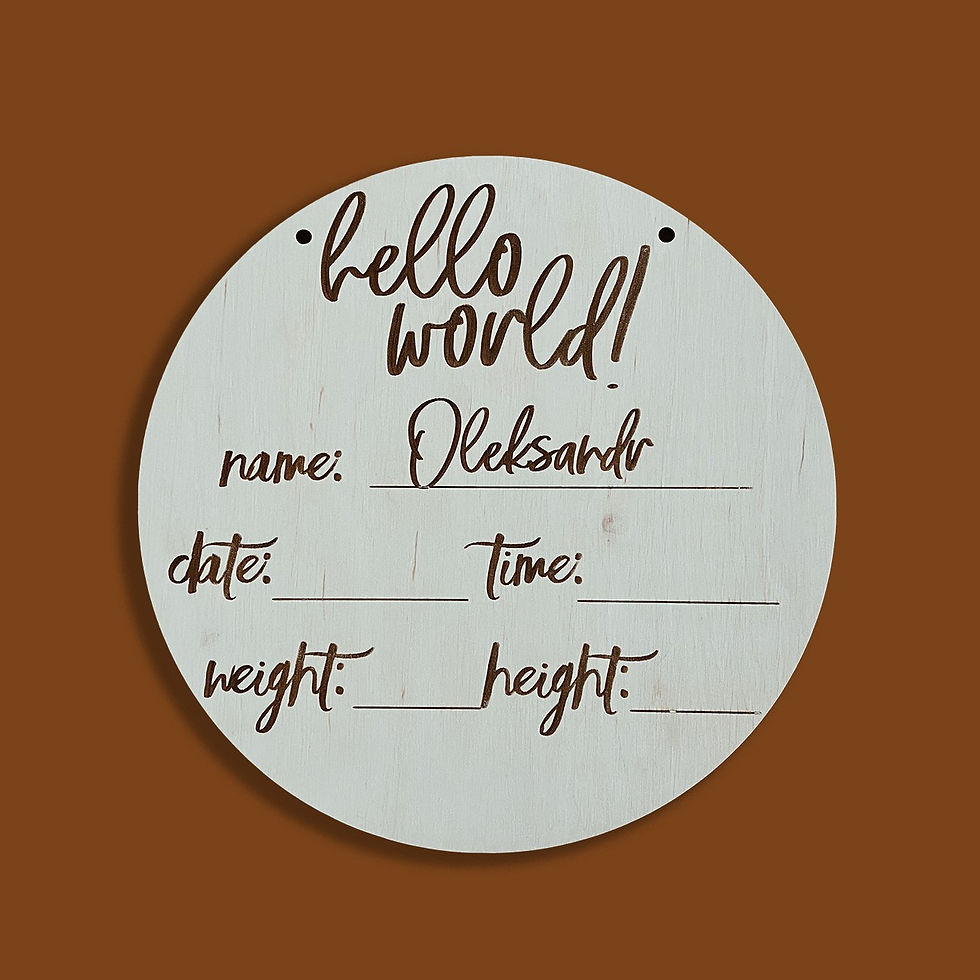 hello
world!
name: Oleksandr
date: time:
weight: height: